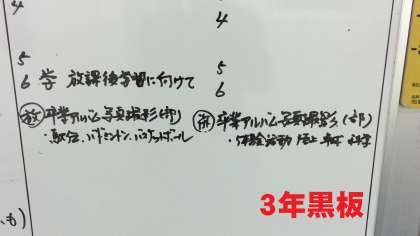 4
5
6 学 放課後学習に向けて
放 卒業アルバム写真撮影(部)
・駅伝、バドミントン、バスケットボール
も)
4
5
6
放 卒業アルバム写真撮影(部)
・体験活動 陸上
3年黒板